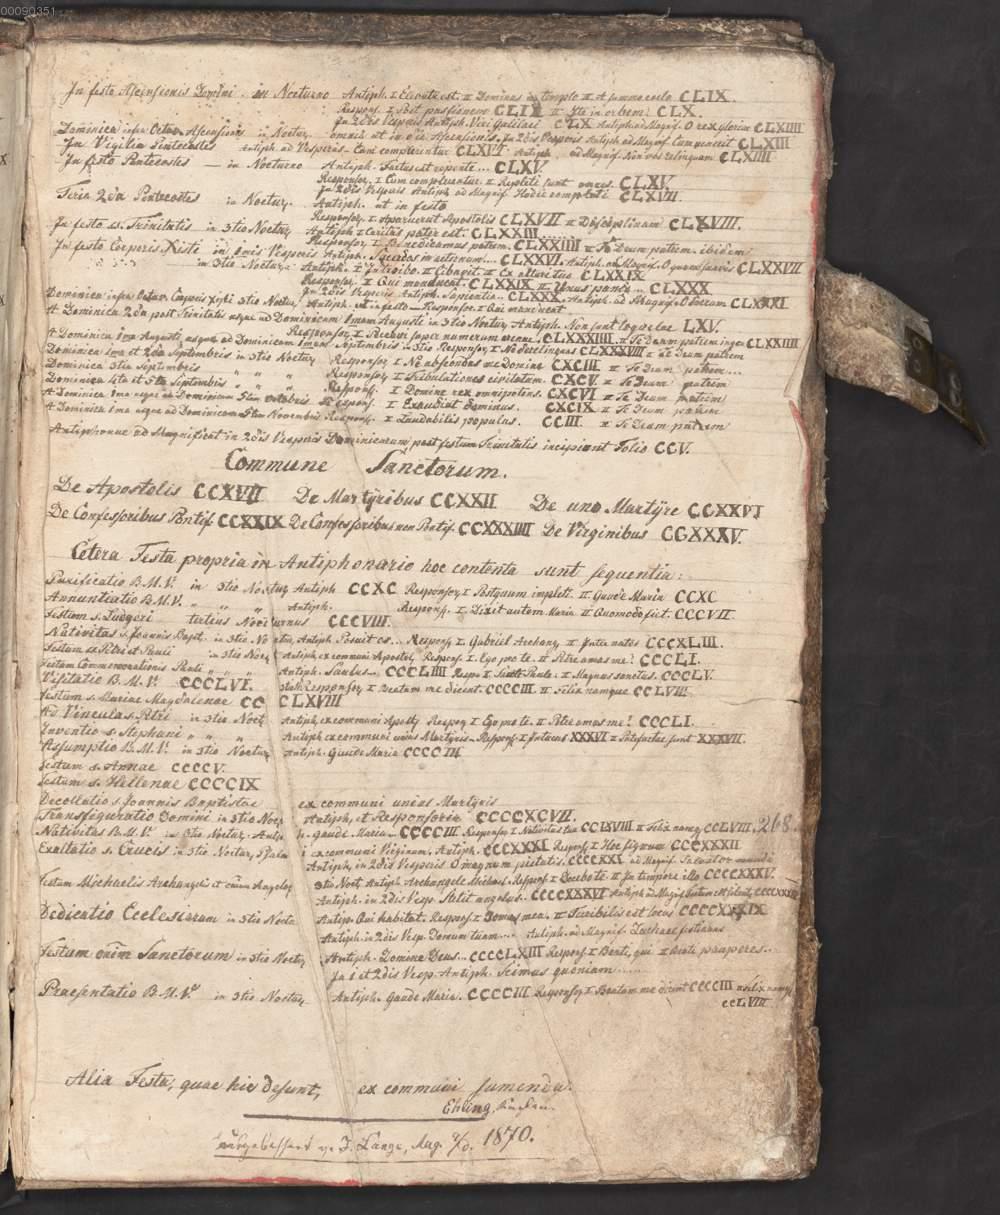 00090351
In festo Ascensionis Domini in Nocturno Antiph. I Elevata est. II Dominus in templo III A summo coelo CLIX.
Respons. I Post passionem CLIX II Ite in orbem CLX.
In 2dis Vesperis Antiph. Viri Galilaei CLX Antiph ad Magnif. O rex gloriae CLXIIII
Dominica infra Octav. Ascensionis in Noctur. omnia ut in die Ascensionis. In 2dis Vesperis Antiph ad Magnif Cum venerit CLXIII
In Vigilia Pentecostes Antiph ad Vesperis Cum complerentur CLXVI Antiph. ad Magnif. Non vos relinquam CLXIIII
In festo Pentecostes — in Nocturno Antiph. Factus est repente ... CLXV.
Responsor. I Cum complerentur II Repleti sunt omnes. CLXV.
In 2dis Vesperis Antiph ad Magnif Hodie completi CLXVII.
Feria 2da Pentecostes in Noctur. Antiph. ut in festo
Responsor. I Aparuerut Apostolis CLXVII II Disciplinam CLXVIII.
In festo ss. Trinitatis in 3tio Noctur Antiph I Caritas pater est. CLXXIII
Responsor. I Benedicamus patrem. CLXXIIII II Te Deum patrem ibidem
In festo Corporis Xristi in 1mis Vesperis Antiph. Sacerdos in aeternum... CLXXVI. Antiph. ad Magnif. O quam suavis CLXXVII
in 3tio Noctur. Antiph. I Introibo II Cibavit III Ex altari tuo CLXXIX
Responsor. I Qui manducat. CLXXIX II Unus panis... CLXXX
In 2dis Vesperis Antiph. Sapientia... CLXXX. Antiph. ad Magnif. O Sacrum CLXXXI
Dominica infra Octav. Corporis Xristi 3tio Noctur Antiph. ut in festo — Responsor. I Qui manducat
A Dominica 2da post Trinitatis usque ad Dominicam 1mam Augusti in 3tio Noctur Antiph. Non sunt loquelae LXV.
Responsor. I Peccavi super numerum arenae. CLXXXIIII II Te Deum patrem inge CLXXIIII
A Dominica 1ma Augusti usque ad Dominicam 1mam Septembris in 3tio Responsor. I Ne derelinquas CLXXXVIII II Te Deum patrem
Dominica 1ma et 2da Septembris in 3tio Noctur Responsor. I Ne abscondas me Domine CXCIII II Te Deum patrem...
Dominica 3tia Septembris " " " Responsor. I Tribulationes civitatum CXCV. II Te Deum patrem
Dominica 4ta et 5ta Septembris " " " Responsor. I Domine rex omnipotens. CXCVI II Te Deum patrem
A Dominica 1ma usque ad Dominicam 5tam Octobris Responsor. I Exaudiat Dominus. CXCIX II Te Deum patrem
A Dominica 1ma usque ad Dominicam 5tam Novembris Responsor. I Laudabilis populus. CCIII. II Te Deum patrem
Antiphonae ad Magnificat in 2dis Vesperis Dominicarum post festum Trinitatis incipiunt Folio CCV.
Commune Sanctorum.
De Apostolis CCXVII De Martÿribus CCXXII De uno Martÿre CCXXVI
De Confessoribus Pontif CCXXIX De Confessoribus non Pontif. CCXXXIIII De Virginibus CCXXXV.
Cetera Festa propria in Antiphonario hoc contenta sunt sequentia:
Purificatio B.M.V. in 3tio Noctur Antiph CCXC Responsor. I Postquam impleti II Gaude Maria CCXC
Annuntiatio B.M.V. " " " Antiph. Responsor. I. Dixit autem Maria II Quomodo fiet. CCCVII
Festum s. Ludgeri tertius Nocturnus CCCVIII.
Nativitas s. Joannis Bapt. in 3tio Noctur, Antiph. Posuit os... Responsor I. Gabriel Archang II Inter natos CCCXLIII.
Festum ss. Petri et Pauli in 3tio Noct Antiph, ex communi Apostol, Respons. I. Ego pro te. II Petre amas me? CCCLI.
Festum Commemorationis Pauli " " Antiph. Saulus... CCCLIIII Respo I. Sancte Paule. II Magnus sanctus. CCCLV.
Visitatio B.M.V. CCCLVI. Responsor. I Beatam me dicent. CCCCIII II Felix namque CCLVIII
Festum s. Mariae Magdalenae CCCLXVIII
Ad Vincula s. Petri in 3tio Noct. Antiph, ex communi Apost. Respons I Ego pro te. II Petre amas me? CCCLI.
Inventio s. Stephani " " " Antiph ex communi unius Martyris. Respons. I Intuens XXXVI II Patefactae sunt XXXVII.
Assumptio B.M.V. in 3tio Noctur Antiph. Gaude Maria CCCCIII
Festum s. Annae CCCCV.
Festum s. Hellenae CCCCIX
Decollatio s. Joannis Baptistae ex communi unius Martyris
Transfiguratio Domini in 3tio Noct Antiph, et Responsoria CCCCXCVII.
Nativitas B.M.V. in 3tio Noctur. Antiph. Gaude Maria. CCCCIII Responsor. I Nativitas tua CCLXVIII II Felix namq CCLVIII. 268
Exaltatio s. Crucis in 3tio Noctur, Psalmi ex communi Virginum, Antiph. CCCXXXI Respons. I Hoc signum CCCXXXII
Antiph. in 2dis Vesperis O magnum pietatis. CCCCXXI ad Magnif. Salvator mundi
Festum Michaelis Archangeli et omnium Angelor 3tio Noct Antiph Archangele Michael. Respons I Docebo te. II In tempore illo CCCCXXXV.
Antiph. in 2dis Vesp. Stetit angelus. CCCCXXXVI
Dedicatio Ecclesiarum in 3tio Noctu Antiph. Qui habitat. Respons. I Domus mea. II Terribilis est locus CCCCXXXIX
Antiph in 2dis Vesp. Domum tuam... Antiph. ad Magnif. Zachaee festinans
Festum omnium Sanctorum in 3tio Noctur Antiph. Domine Deus... CCCCLXIII Respons. I Beati, qui II Beati pauperes..
In 1 et 2dis Vesp. Antiph. Scimus quoniam.....
Praesentatio B.M.V. in 3tio Noctur Antiph. Gaude Maria. CCCCIII Responsor. I Beatam me dicent CCCCIII II Felix namq
CCLVIII
Alia Festa, quae hic desunt, ex communi sumenda.
Ehling,
ausgebessert v. J. Lange, Aug. 1870.